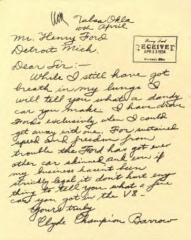 Tulsa Okla
10th April
Mr. Henry Ford
Detroit Mich.
RECEIVED
Dear Sir:—
While I still have got
breath in my lungs I
will tell you what a dandy
car you make. I have drove
Fords exclusively when I could
get away with one. For sustained
speed and freedom from
trouble the Ford has got ever
other car skinned and even if
my business hasen't been
strickly legal it don't hurt eny
thing to tell you what a fine
car you got in the V8—
Yours truly
Clyde Champion Barrow